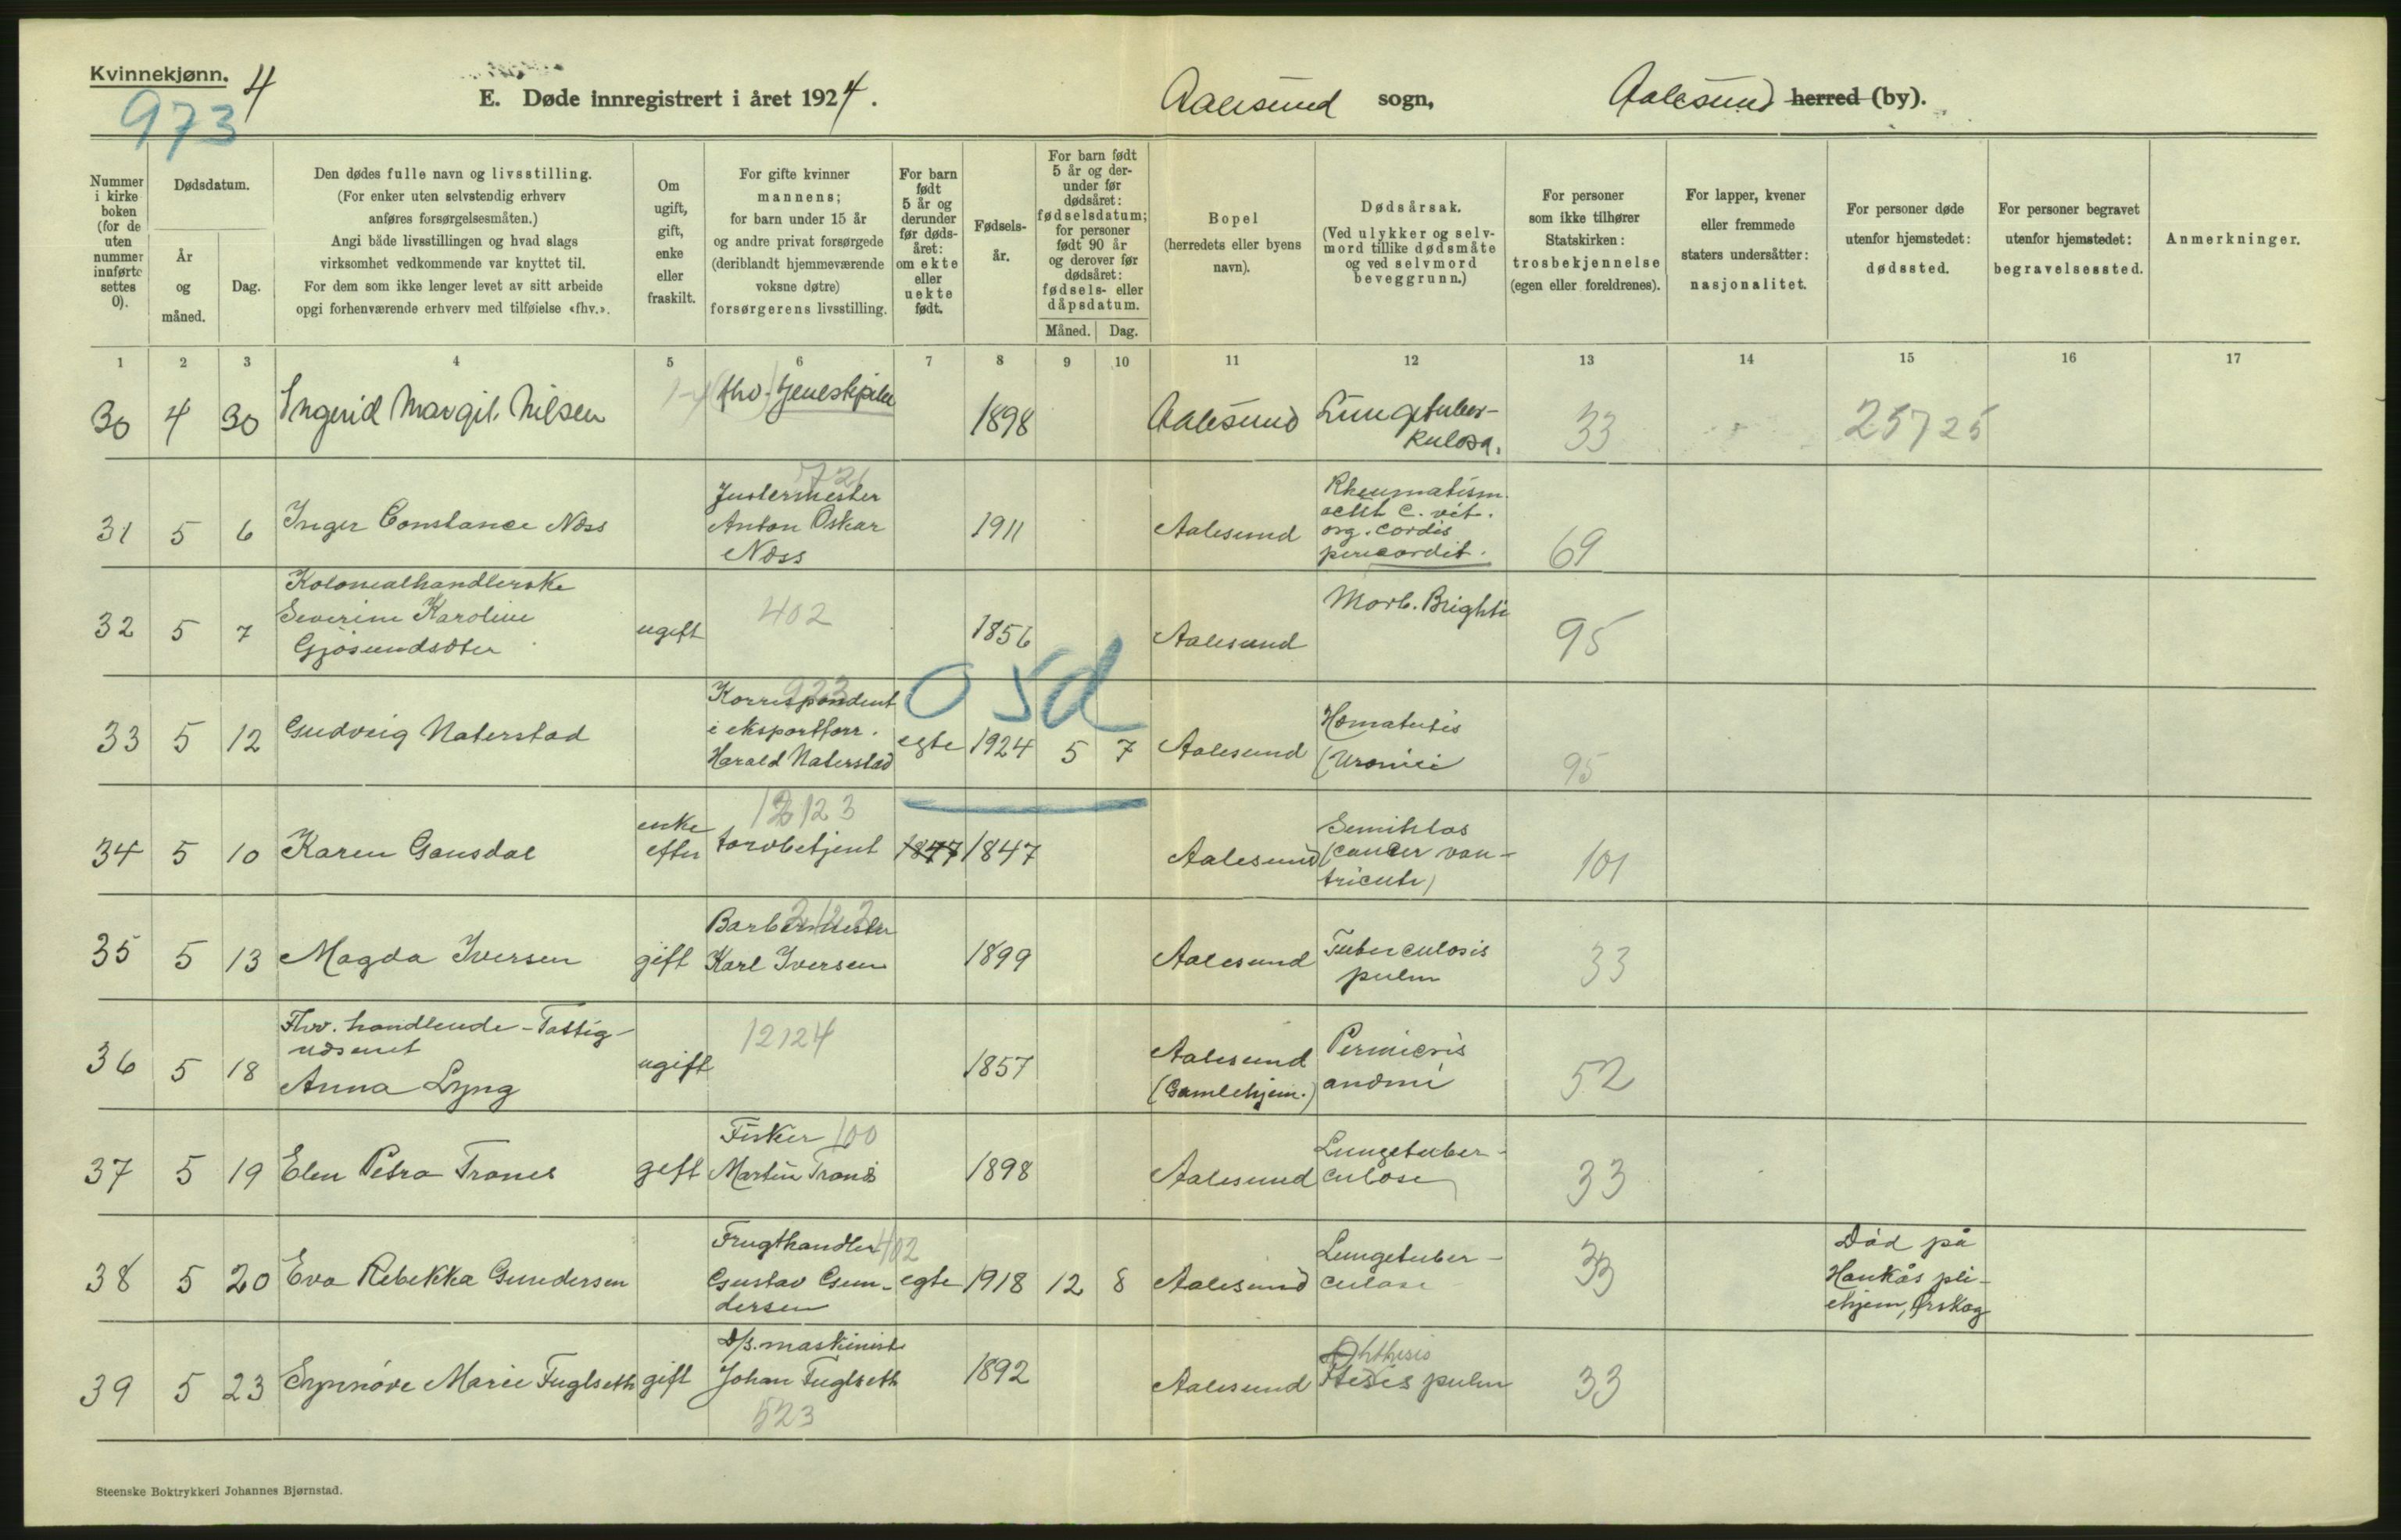 Kvinnekjønn. 4
973
E. Døde innregistrert i året 1924. Aalesund sogn, Aalesund herred (by).
Nummer i kirke boken (for de uten nummer innførte settes 0).
Dødsdatum.
År og måned.
Dag.
Den dødes fulle navn og livsstilling.
(For enker uten selvstendig erhverv
anføres forsørgelsesmåten.)
Angi både livsstillingen og hvad slags
virksomhet vedkommende var knyttet til.
For dem som ikke lenger levet av sitt arbeide
opgi forhenværende erhverv med tilføielse «fhv.».
Om ugift, gift, enke eller fraskilt.
For gifte kvinner
mannens;
for barn under 15 år
og andre privat forsørgede
(deriblandt hjemmeværende
voksne døtre)
forsørgerens livsstilling.
For barn født 5 år og derunder før dødsåret: om ekte eller uekte født.
Fødselsår.
For barn født 5 år og derunder før dødsåret: fødselsdatum; for personer født 90 år og derover før dødsåret: fødsels- eller dåpsdatum.
Måned. Dag.
Bopel
(herredets eller byens
navn).
Dødsårsak.
(Ved ulykker og selvmord tillike dødsmåte
og ved selvmord
beveggrunn.)
For personer
som ikke tilhører
Statskirken:
trosbekjennelse
(egen eller foreldrenes).
For lapper, kvener
eller fremmede
staters undersåtter:
nasjonalitet.
For personer døde
utenfor hjemstedet:
dødssted.
For personer begravet
utenfor hjemstedet:
begravelsessted.
Anmerkninger.
1 2 3 4 5 6 7 8 9 10 11 12 13 14 15 16 17
30 4 30 Ingerid Margit Nilsen fhv. 1898 Aalesund Lungetuber-
kulosa. 33 25725
721
31 5 6 Inger Constance Næss Justermester
Anton Oskar
Næss 1911 Aalesund Rheumatism.
c. vit.
org. cordis
pericardit. 69
32 5 7 Kolonialhandlerske
Severine Karoline
Gjøsundsdter ugift 402 1856 Aalesund Morb. Brighti 95
osd
33 5 12 Gudveig Naterstad Korrespondent 923
i eksportforr.
Harald Naterstad egte 1924 5 7 Aalesund 95
34 5 10 Karen Gausdal enke
efter torvbetjent 12123 1877 1847 Aalesund
(cancer ven-
triculi) 101
35 5 13 Magda Iversen gift Barbermester
Karl Iversen 1899 Aalesund Tuberculosis
pulm 33
36 5 18 Fhv. handlende - Fattig-
Anna Lyng ugift 12124 1857 Aalesund
(Gamlehjem.) Pernicøs
anæmi 52
37 5 19 Elen Petra Tranes gift Fisker 100
Martin Tranes 1898 Aalesund Lungetuber-
culose 33
38 5 20 Eva Rebekka Gundersen Frugthandler 402
Gustav Gun-
dersen egte 1918 12 8 Aalesund Lungetuber-
culose 33 Død på
Haukås plei-
ehjem, Ørskog
39 5 23 Synnøve Marie Fuglseth gift D/s. maskinist
Johan Fuglseth
523 1892 Aalesund Phthisis
pulm 33
Steenske Boktrykkeri Johannes Bjørnstad.